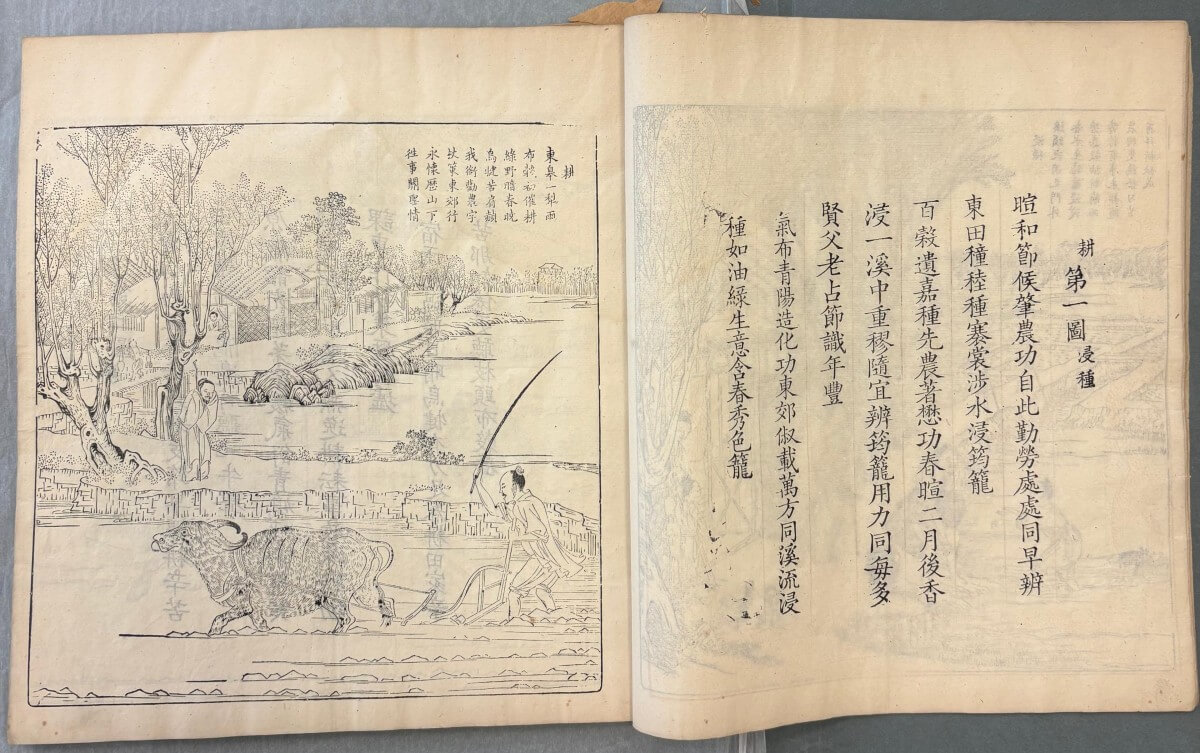 耕第一圖浸種
暄和節候肇農功自此勤勞處處同早辨
東田穜稑種褰裳涉水浸筠籠
百穀遺嘉種先農著懋功春暄二月後香
浸一溪中重穋隨宜辨筠籠用力同每多
賢父老占節識年豐
氣布青陽造化功東郊俶載萬方同溪流浸
種如油綠生意含春秀色籠
耕
東皋一犂雨
布穀初催耕
綠野暗春曉
烏犍苦肩赬
我銜勸農字
杖策東郊行
永懷歷山下
往事關聖情